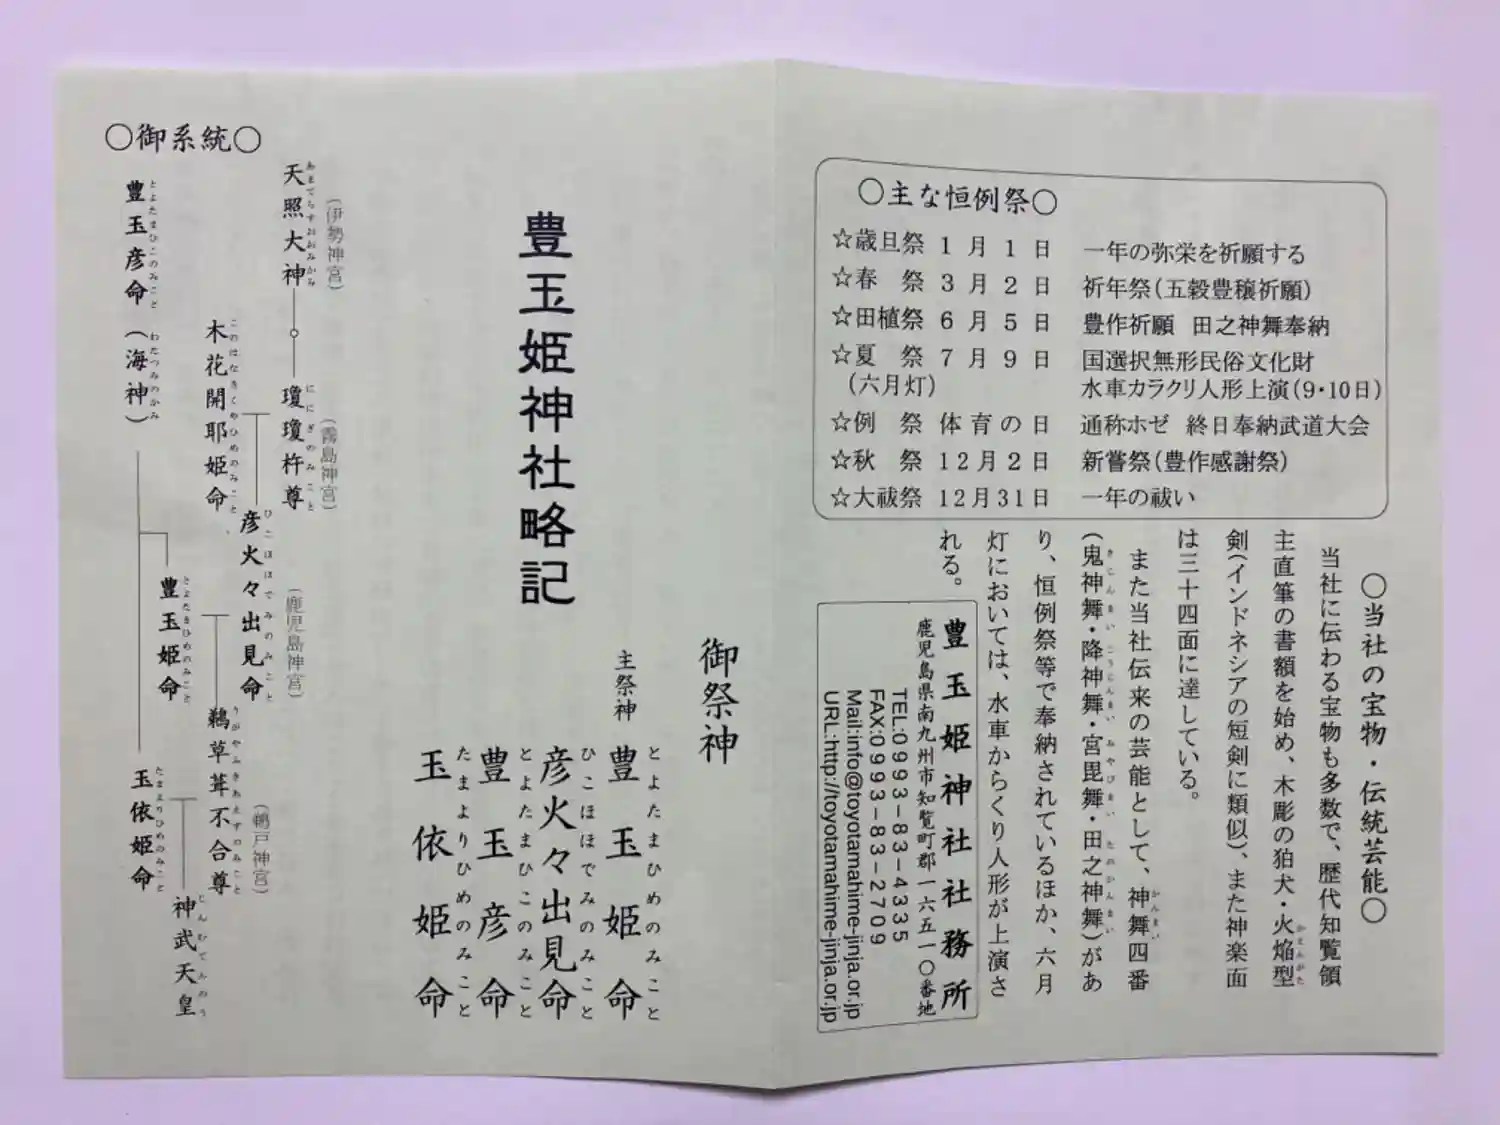 ○主な恒例祭○
☆歳旦祭 1月1日 一年の弥栄を祈願する
☆春 祭 3月2日 祈年祭(五穀豊穣祈願)
☆田植祭 6月5日 豊作祈願 田之神舞奉納
☆夏 祭 7月9日 国選択無形民俗文化財
(六月灯) 水車カラクリ人形上演(9・10日)
☆例 祭 体育の日 通称ホゼ 終日奉納武道大会
☆秋 祭 12月2日 新嘗祭(豊作感謝祭)
☆大祓祭 12月31日 一年の祓い
○当社の宝物・伝統芸能○
当社に伝わる宝物も多数で、歴代知覧領
主直筆の書額を始め、木彫の狛犬・火焔型
かえんがた
剣(インドネシアの短剣に類似)、また神楽面
は三十四面に達している。
また当社伝来の芸能として、神舞四番
かんまい
(鬼神舞・降神舞・宮毘舞・田之神舞)があ
きじんまい こうじんまい みやびまい たのかんまい
り、恒例祭等で奉納されているほか、六月
灯においては、水車からくり人形が上演さ
れる。
豊玉姫神社社務所
鹿児島県南九州市知覧町郡一六五一〇番地
TEL:0993-83-4335
FAX:0993-83-2709
Mail:info@toyotamahime-jinja.or.jp
URL:http://toyotamahime-jinja.or.jp
御祭神
主祭神 豊玉姫命
とよたまひめのみこと
彦火々出見命
ひこほほでみのみこと
豊玉彦命
とよたまひこのみこと
玉依姫命
たまよりひめのみこと
豊玉姫神社略記
○御系統○
(伊勢神宮)
天照大神
あまてらすおおみかみ
(霧島神宮)
瓊瓊杵尊
ににぎのみこと
木花開耶姫命
このはなさくやひめのみこと
(鹿児島神宮)
彦火々出見命
ひこほほでみのみこと
豊玉彦命(海神)
とよたまひこのみこと わたつみのかみ
豊玉姫命
とよたまひめのみこと
(鵜戸神宮)
鵜草葺不合尊
うがやふきあえずのみこと
玉依姫命
たまよりひめのみこと
神武天皇
じんむてんのう